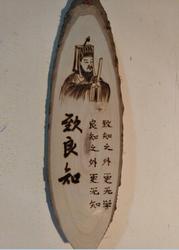 致良知
致知之外更无学
良知之外更无知